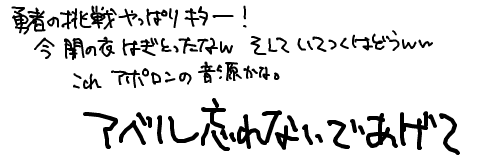 勇者の挑戦やっぱりキター！
今闇の衣はぎとったなw そしていてつくはどうww
これ アポロンの音源かな。
アベル忘れないであげて